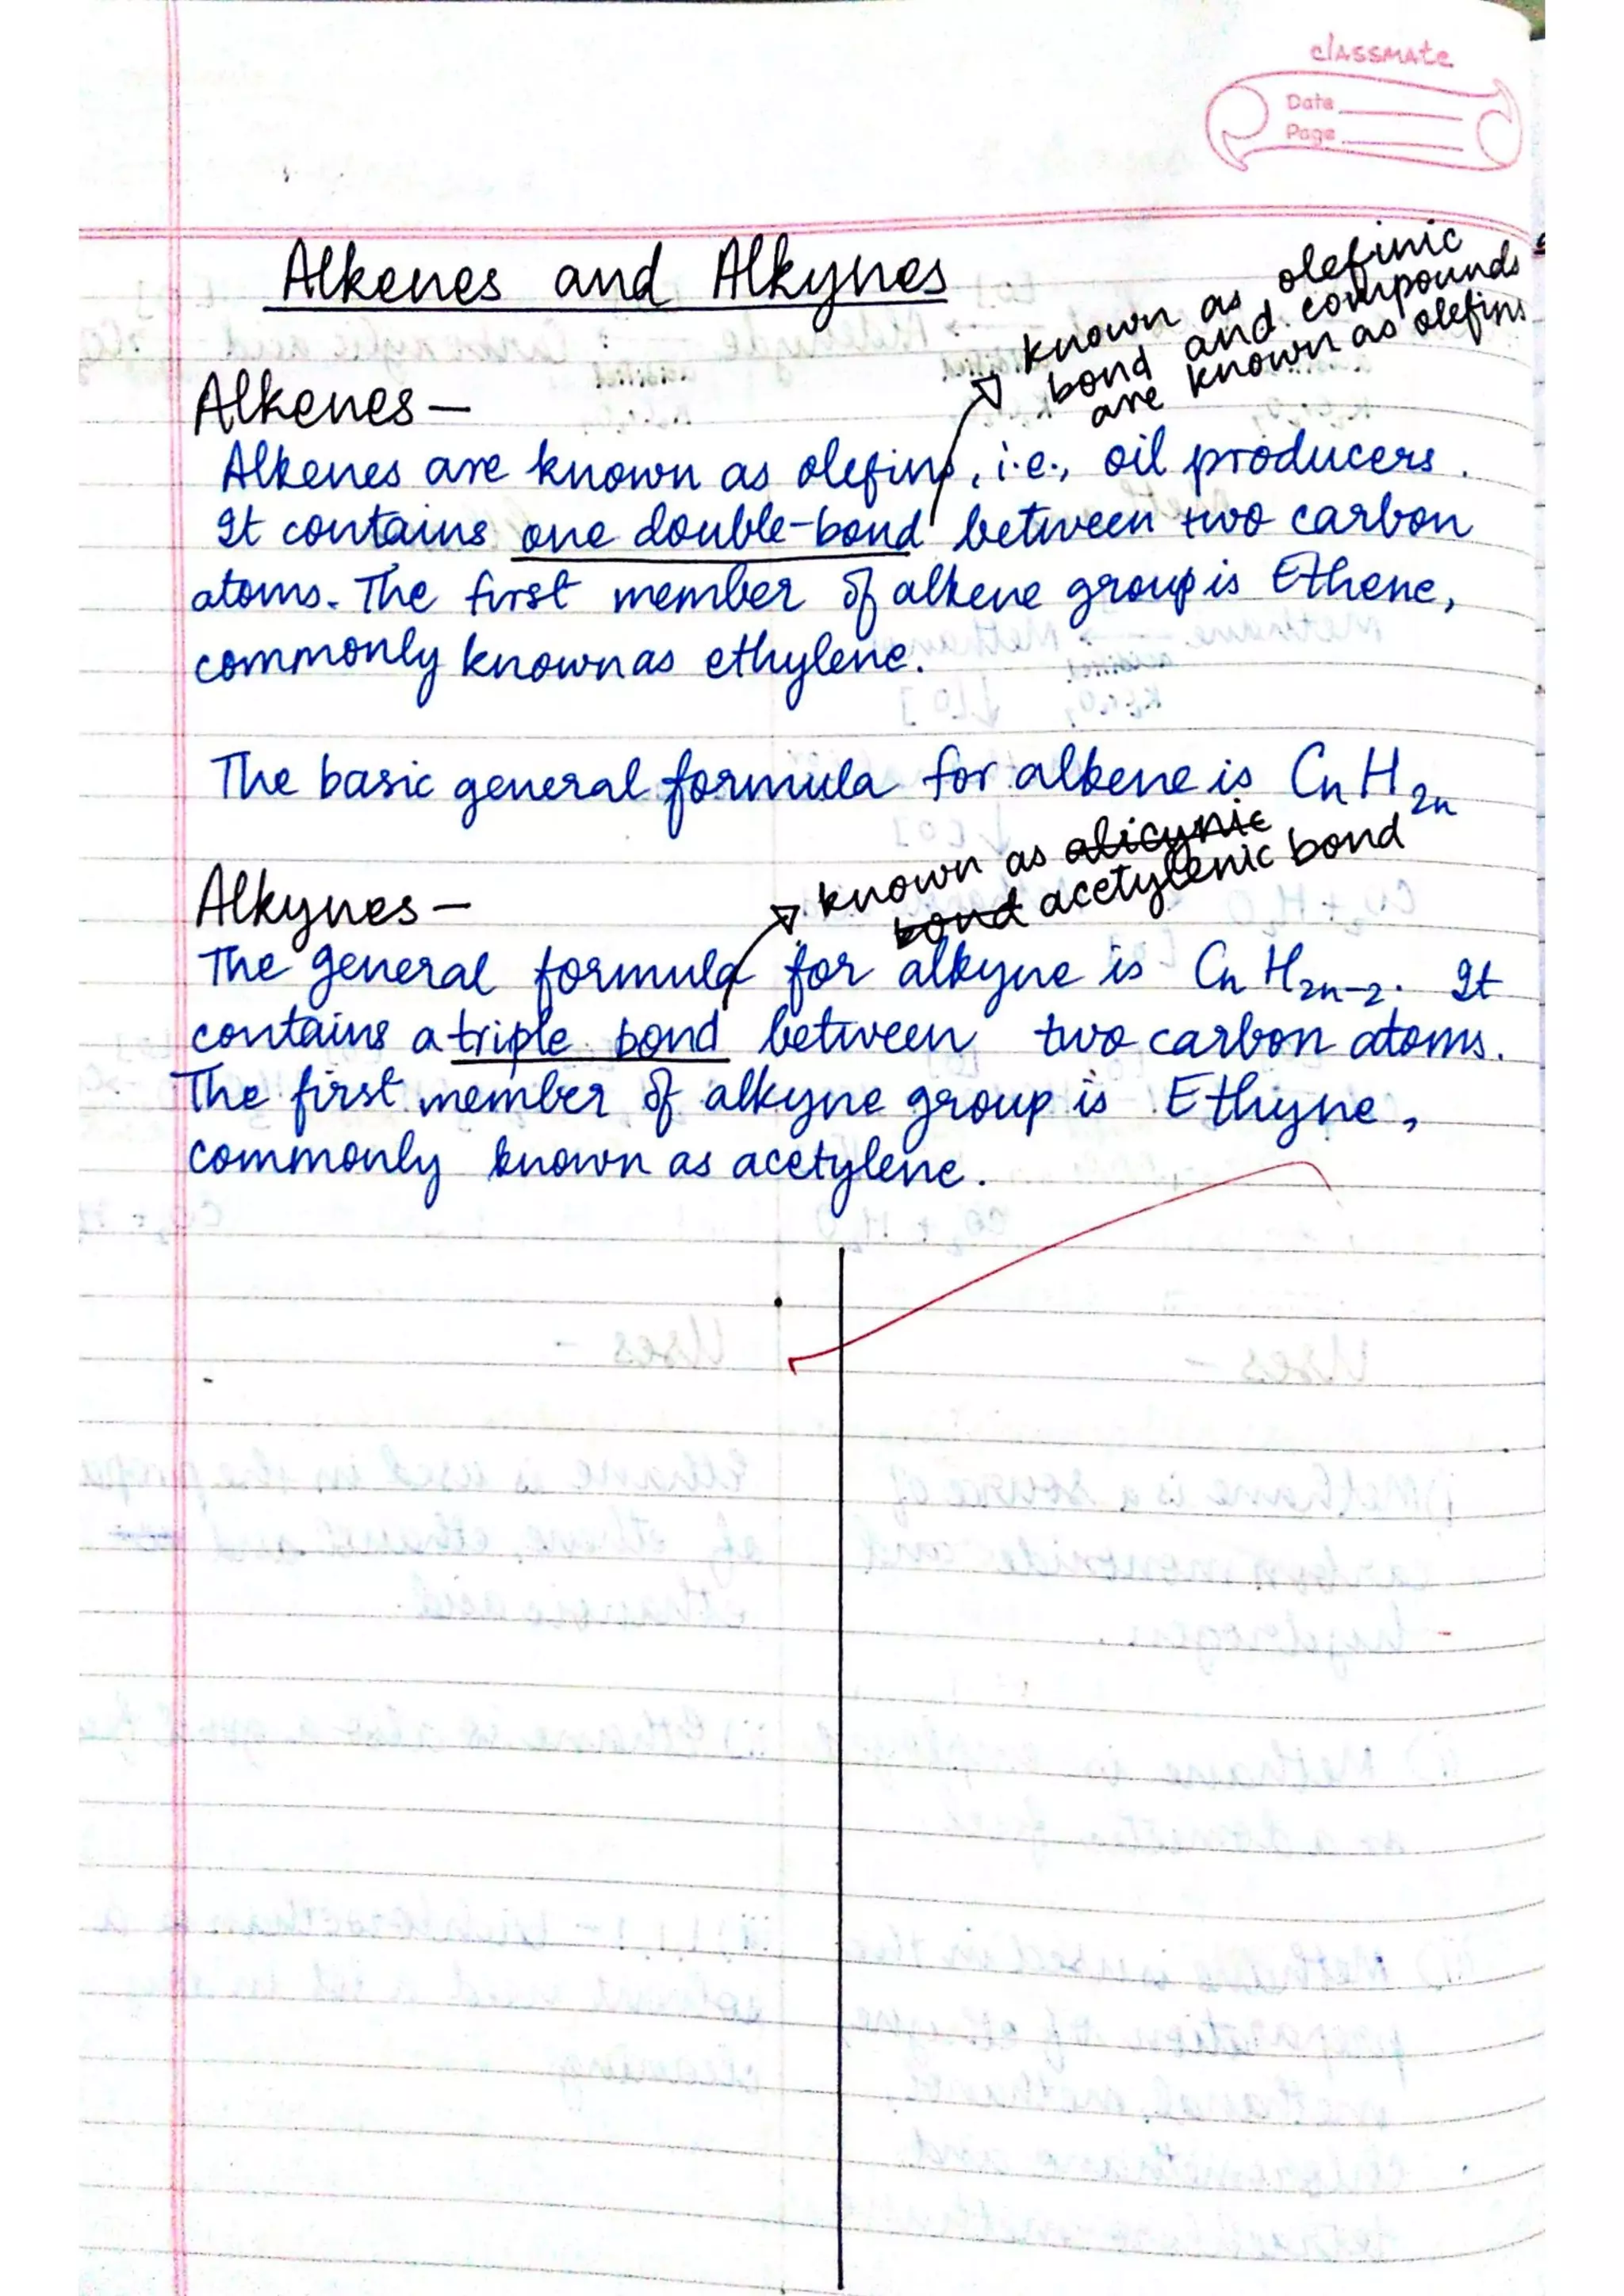 classmate
Date
Page
Alkenes and Alkynes
known as olefinic
bond and compounds
are known as olefins
Alkenes –
Alkenes are known as olefins, i.e., oil producers.
It contains one double-bond between two carbon
atoms. The first member of alkene group is Ethene,
commonly known as ethylene.
The basic general formula for alkene is CnH2n
known as alicynic
bond acetylenic bond
Alkynes –
The general formula for alkyne is CnH2n-2. It
contains a triple bond between two carbon atoms.
The first member of alkyne group is Ethyne,
commonly known as acetylene.